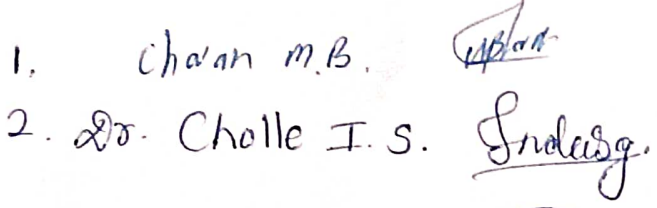 1. Chavan M.B.
2. Dr. Cholle I. S.